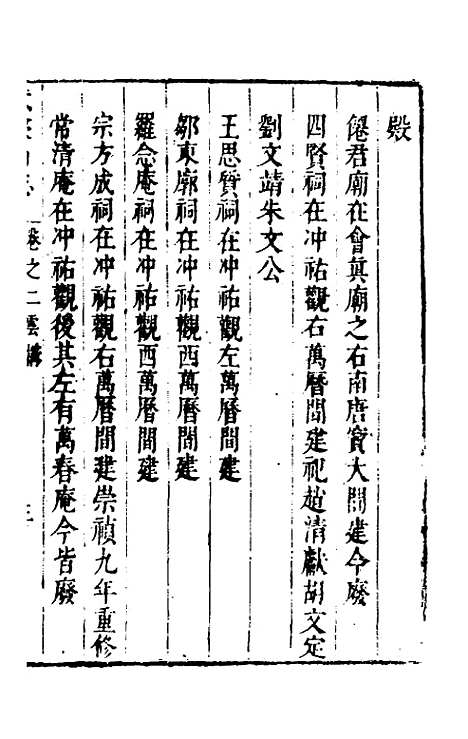 殿
僊君廟在會眞廟之右南唐寶大間建今廢
四賢祠在冲祐觀右萬曆間建祀趙清獻胡文定
劉文靖朱文公
王思質祠在冲祐觀左萬曆間建
鄒東廓祠在冲祐觀西萬曆間建
羅念庵祠在冲祐觀西萬曆間建
宗方成祠在冲祐觀右萬曆間建崇禎九年重修
常清庵在冲祐觀後其左有萬春庵今皆廢
卷之二雲構 三